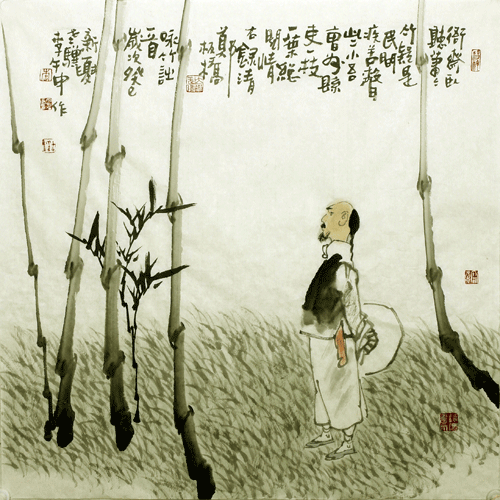 衙齋臥
聽蕭蕭
竹疑是
民間
疾苦聲
些小吾
曹州縣
吏一枝
一葉總
關情
右錄清
鄭
板橋
詠竹詩
一首
歲次癸巳
新夏
李午申作